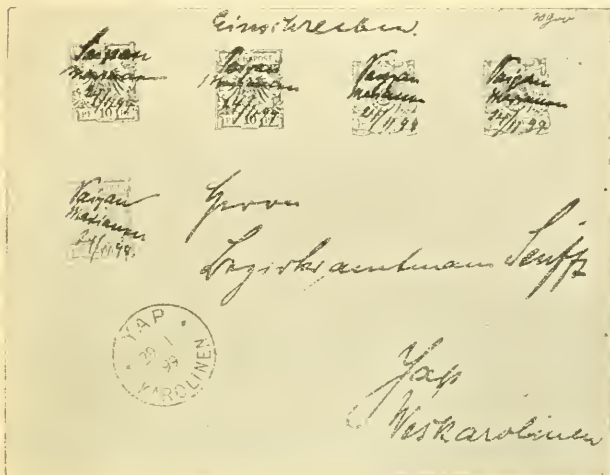 Einschreiben.
Saipan
Marianen
24/11.99
Saipan
Marianen
24/11.99
Saipan
Marianen
24/11.99
Saipan
Marianen
24/11.99
10
10
Saipan
Marianen
24/11.99.
Herrn
Bezirksamtmann Senfft
Yap
Westkarolinen
YAP
29 1
99
KAROLINEN